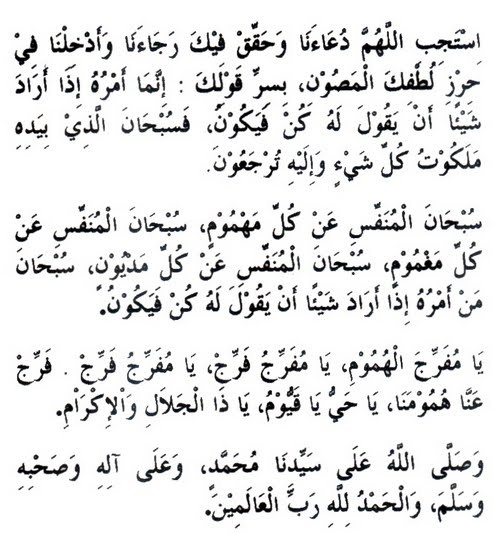 اسْتَجِبِ اللَّهُمَّ دُعَاءَنَا وَحَقِّقْ فِيْكَ رَجَاءَنَا وَأَدْخِلْنَا فِيْ
حِرْزِ لُطْفِكَ الْمَصُوْنِ، بِسِرِّ قَوْلِكَ : إِنَّمَا أَمْرُهُ إِذَا أَرَادَ
شَيْئًا أَنْ يَقُوْلَ لَهُ كُنْ فَيَكُوْنُ، فَسُبْحَانَ الَّذِيْ بِيَدِهِ
مَلَكُوْتُ كُلِّ شَيْءٍ وَإِلَيْهِ تُرْجَعُوْنَ.
سُبْحَانَ الْمُنَفِّسِ عَنْ كُلِّ مَهْمُوْمٍ، سُبْحَانَ الْمُنَفِّسِ عَنْ
كُلِّ مَغْمُوْمٍ، سُبْحَانَ الْمُنَفِّسِ عَنْ كُلِّ مَدْيُوْنٍ، سُبْحَانَ
مَنْ أَمْرُهُ إِذَا أَرَادَ شَيْئًا أَنْ يَقُوْلَ لَهُ كُنْ فَيَكُوْنُ.
يَا مُفَرِّجَ الْهُمُوْمِ، يَا مُفَرِّجُ فَرِّجْ، يَا مُفَرِّجُ فَرِّجْ . فَرِّجْ
عَنَّا هُمُوْمَنَا، يَا حَيُّ يَا قَيُّوْمُ، يَا ذَا الْجَلَالِ وَالْإِكْرَامِ.
وَصَلَّى اللَّهُ عَلَى سَيِّدِنَا مُحَمَّد، وَعَلَى آلِهِ وَصَحْبِهِ
وَسَلَّمَ، وَالْحَمْدُ لِلَّهِ رَبِّ الْعَالَمِيْنَ.